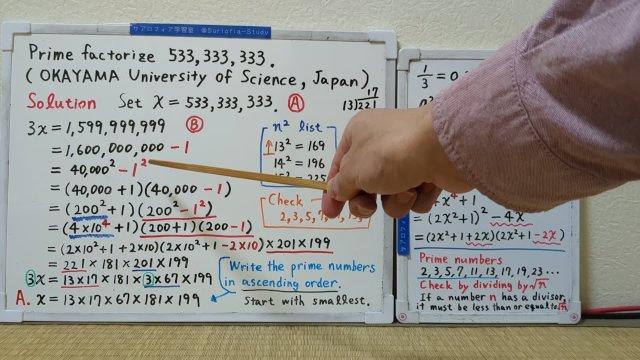 サアロフィア学習室 @Surlofia-Study
Prime factorize 533,333,333.
(OKAYAMA University of Science, Japan)
Solution Set x = 533,333,333. Ⓐ
17
13)221
3x = 1,599,999,999 Ⓑ
= 1,600,000,000 - 1
= 40,000² - 1²
= (40,000 + 1)(40,000 - 1)
= (200² + 1)(200² - 1²)
= (4×10⁴ + 1)(200+1)(200-1)
= (2×10²+1+2×10)(2×10²+1-2×10)×201×199
= 221 × 181 × 201 × 199
3x = 13×17×181×3×67×199
A. x = 13×17×67×181×199
n² list
↑ 13² = 169
14² = 196
= 225
Check
2,3,5,7,
Write the prime numbers
in ascending order.
Start with smallest.
1/3 = 0.
x⁴ + 1
= (2x²+1)² - 4x
= (2x²+1+2x)(2x²+1-2x)
Prime numbers
2, 3, 5, 7, 11, 13, 17, 19, 23 ...
Check by dividing by √n
If a number n has a divisor,
it must be less than or equal to √n